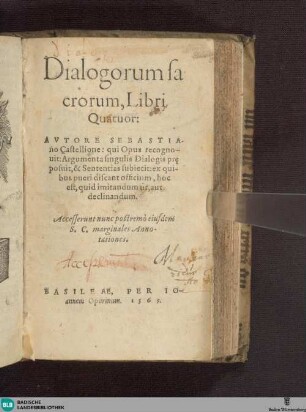 Dialogorum sa
crorum, Libri
Quatuor:
AVTORE SEBASTIA-
no Castellione: qui Opus recogno-
uit: Argumenta singulis Dialogis prę
posuit, & Sententias subiecit: ex qui-
bus pueri discant officium, hoc
est, quid imitandum sit, aut
declinandum.
Accesserunt nunc postremò eiusdem
S. C. marginales Anno-
tationes.
BASILEAE, PER IO-
annem Oporinum. 1565.
BLB BADISCHE
LANDESBIBLIOTHEK
Baden-Württemberg